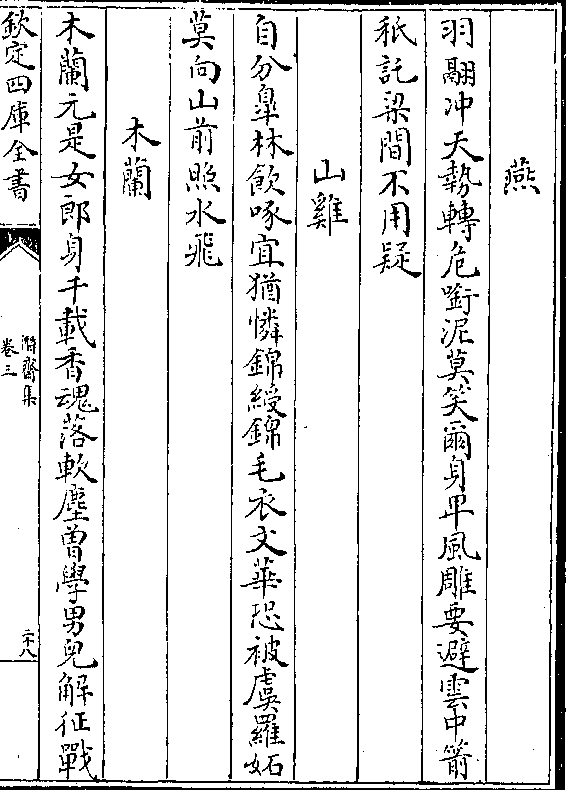 燕
羽翮冲天勢轉危啣泥莫笑爾身甲風雕要避雲中箭
秖託梁間不用疑
山雞
自分臯林飲啄宜猶憐錦綬錦毛衣文華恐被虞羅妬
莫向山前照水飛
木蘭
木蘭元是女郎身千載香魂落軟塵曾學男兒解征戰
欽定四庫全書
潛齋集
卷三
二十八